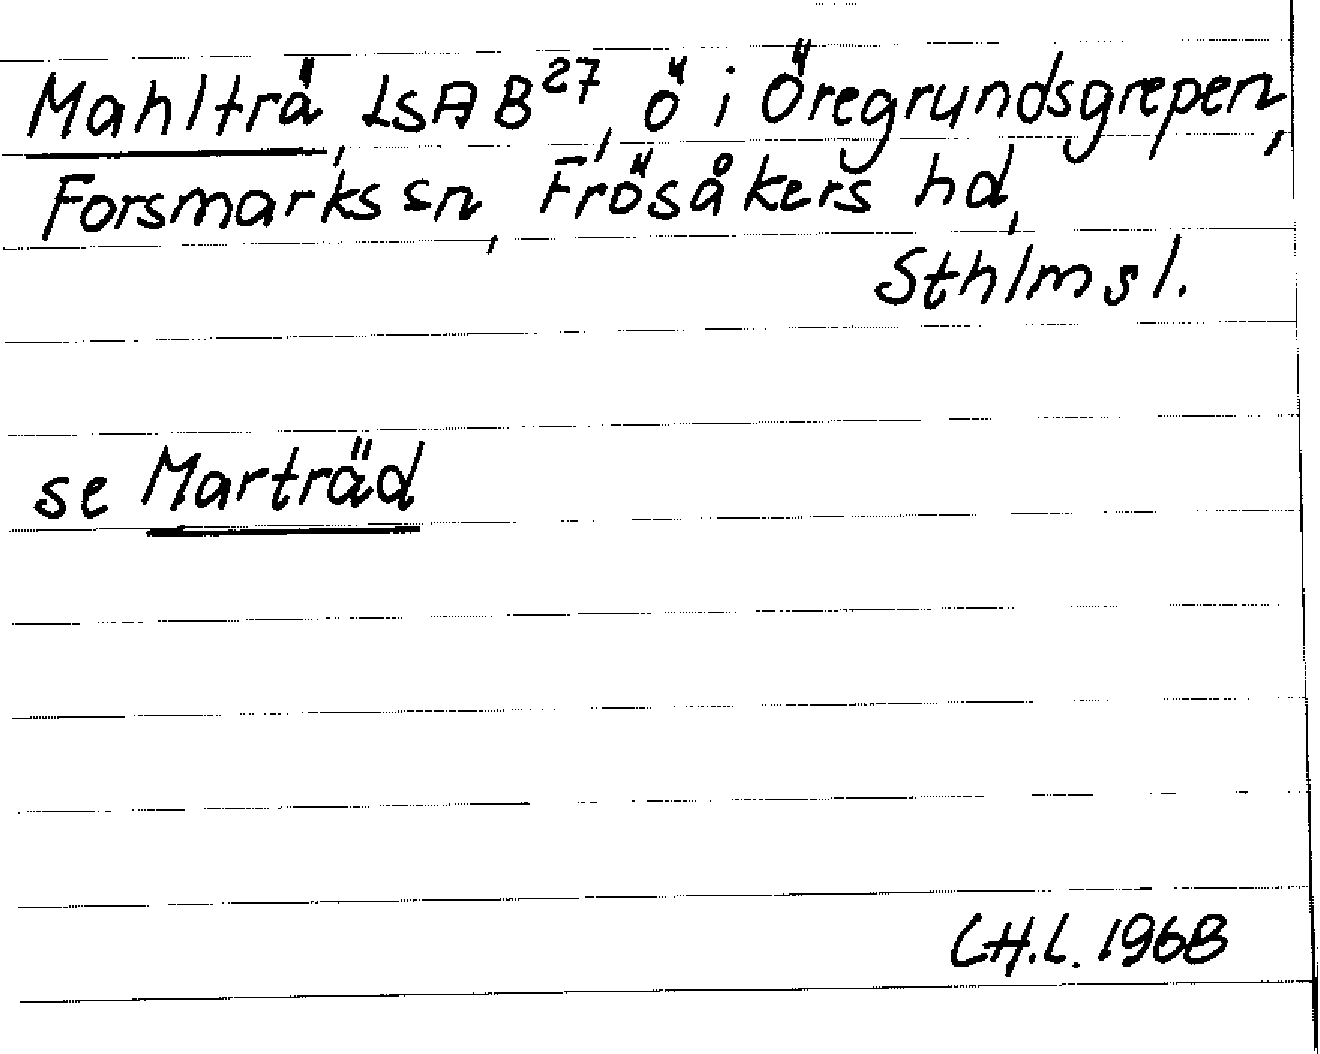 Mahlträ, LSA B27, ö i Öregrundsgrepen,
Forsmarks sn, Frösåkers hd,
Sthlms l.
se Marträd
C.H.L. 1968